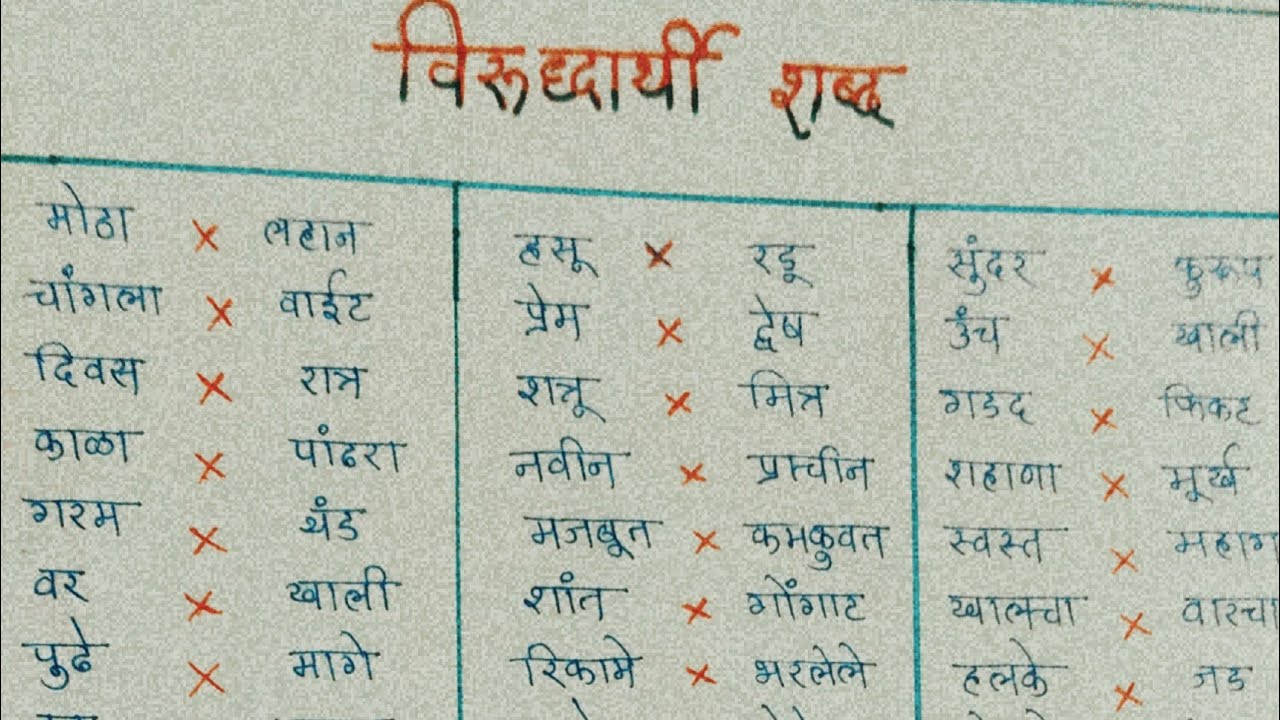 विरूध्दार्थी शब्द
मोठा × लहान
चांगला × वाईट
दिवस × रात्र
काळा × पांढरा
गरम × थंड
वर × खाली
पुढे × मागे
हसू × रडू
प्रेम × द्वेष
शत्रू × मित्र
नवीन × प्राचीन
मजबूत × कमकुवत
शांत × गोंगाट
रिकामे × भरलेले
सुंदर × कुरूप
उंच × खाली
गडद × फिकट
शहाणा × मूर्ख
स्वस्त × महाग
खालचा × वारचा
हलके × जड